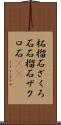 柘榴石ざくろ
石石榴石ザク
ロ石